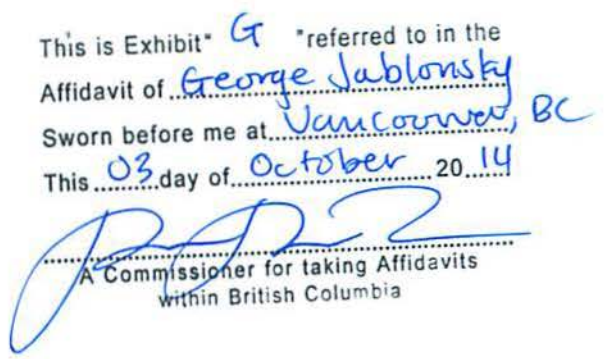 This is Exhibit "G" referred to in the
Affidavit of George Jablonsky
Sworn before me at Vancouver, BC
This 03 day of October 2014
A Commissioner for taking Affidavits
within British Columbia